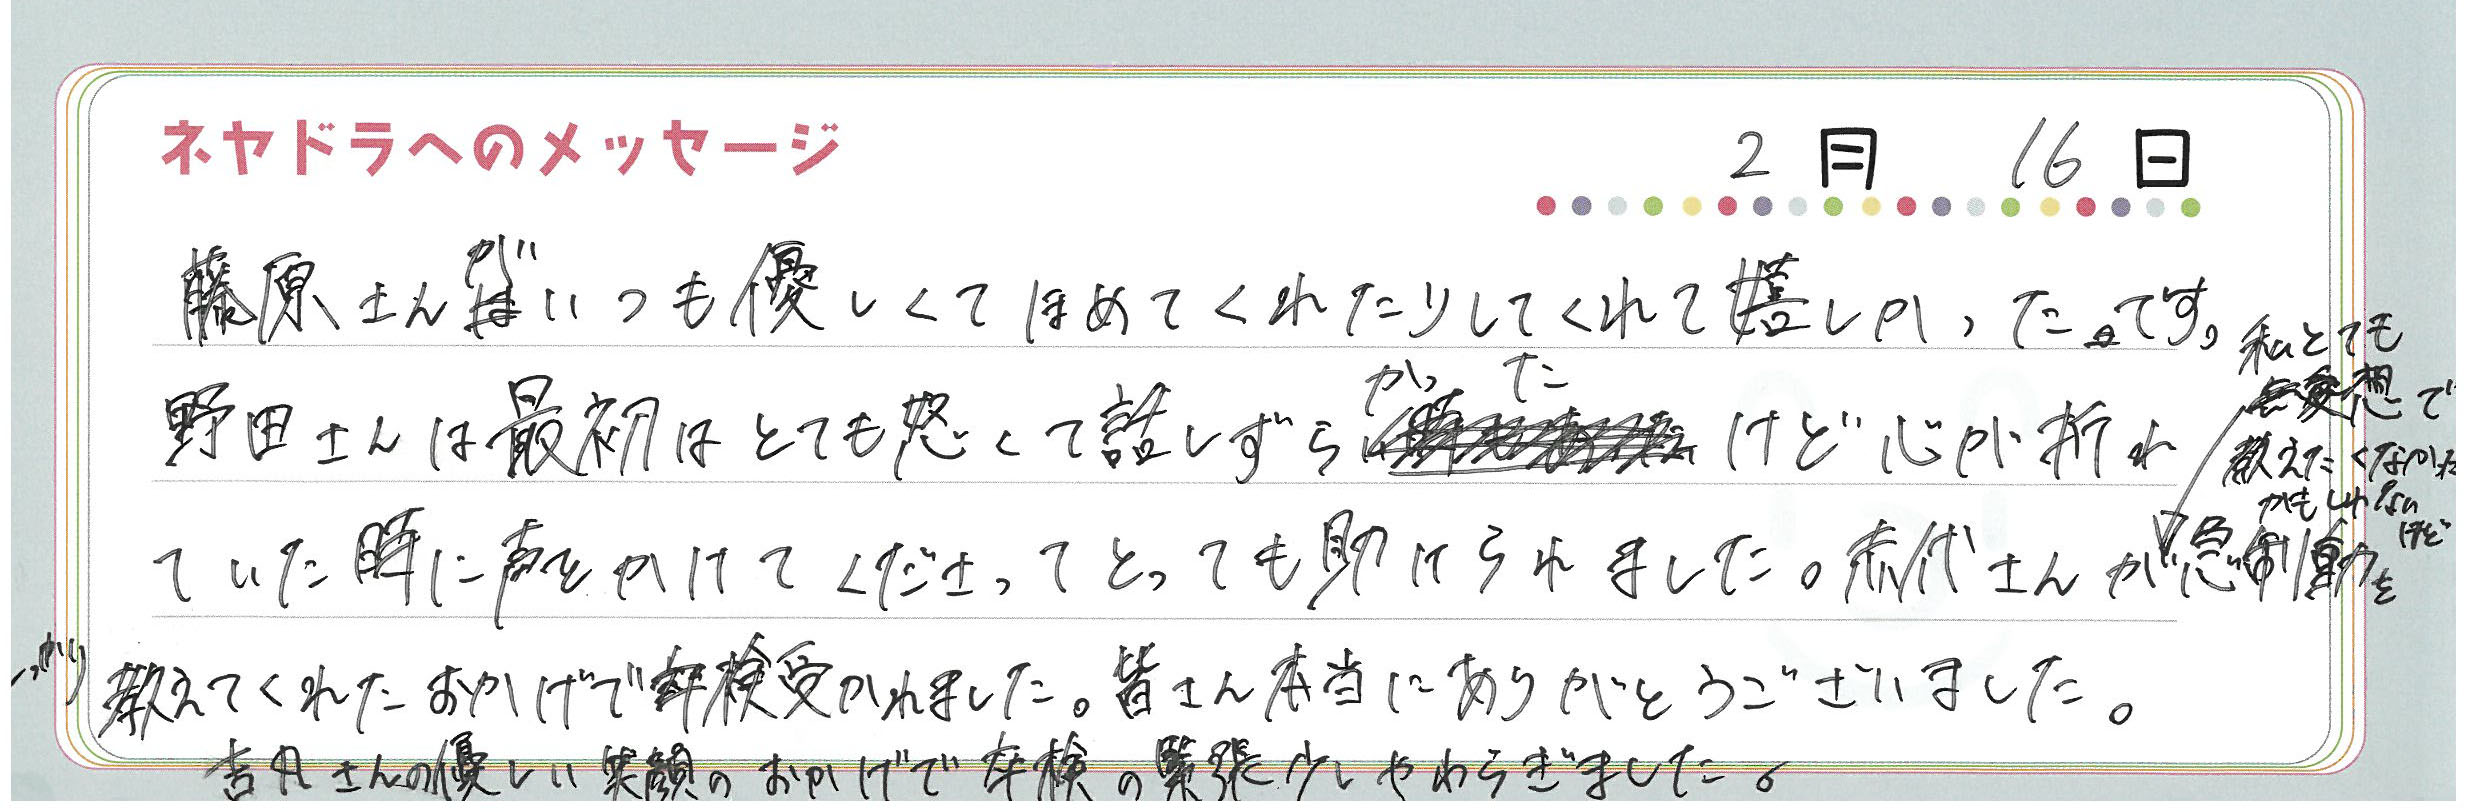 ネヤドラへのメッセージ
2月 16日
藤原さんがいつも優しくてほめてくれたりしてくれて嬉しかったです。
野田さんは最初はとても怒くて話しずらかったけど心が折れ
ていた時に声をかけてくださってとっても助けられました。赤代さんが急制動を
私とても
無愛想で
教えたくなかった
かもしれない
けど
教えてくれたおかげで卒検受かれました。皆さん本当にありがとうございました。
さんの優しい笑顔のおかげで卒検の緊張少しやわらぎました。